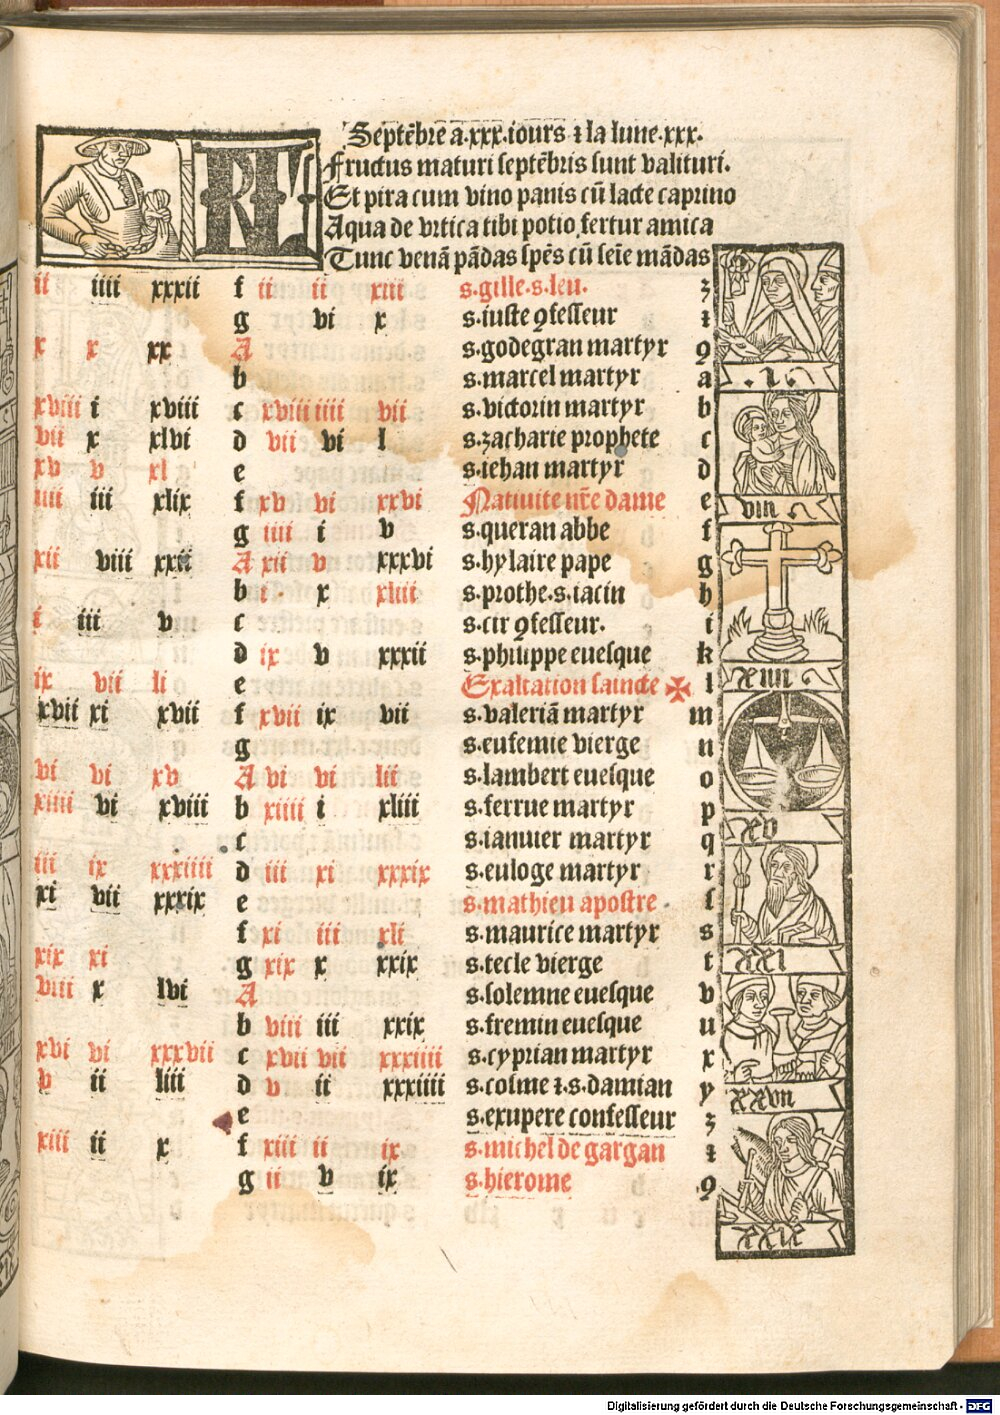 KL
Septēbre a.xxx.iours ⁊ la lune.xxx.
Fructus maturi septēbris sunt valituri.
Et pira cum vino panis cū lacte caprino
Aqua de vrtica tibi potio fertur amica
Tunc venā pādas spēs cū seīe mādas
ii iiii xxxii f ii ii xiii s.gille.s.leu. ʒ
g vi x s.iuste ꝯfesseur ⁊
x x xx A s.godegran martyr ꝯ
b s.marcel martyr a
.i.
xviii i xviii c xviii iiii vii s.victorin martyr b
vii x xlvi d vii vi l s.zacharie prophete c
xv v xl e s.iehan martyr d
iiii iii xlix f xv vi xxvi Natiuite nr̄e dame e
viii
g iiii i v s.queran abbe f
xii viii xxii A xii v xxxvi s.hylaire pape g
b i. x xliii s.prothe.s.iacin h
i iii v c s.cir ꝯfesseur. i
d ix v xxxii s.philippe euesque k
ix vii li e Exaltation saincte ✠ l
xiiii
xvii xi xvii f xvii ix vii s.valeriā martyr m
g s.eufemie vierge n
vi vi xv A vi vi lii s.lambert euesque o
xiiii vi xviii b xiiii i xliii s.ferrue martyr p
xv
c s.ianuier martyr q
iii ix xxxiiii d iii xi xxxix s.euloge martyr r
xi vii xxxix e s.mathieu apostre. ſ
f xi iii xli s.maurice martyr s
xix xi g xix x xxix s.tecle vierge t
xxi
viii x lvi A s.solemne euesque v
b viii iii xxix s.fremin euesque u
xvi vi xxxvii c xvii vii xxxiiii s.cyprian martyr x
v ii liii d v ii xxxiiii s.colme ⁊.s.damian y
xxvii
e s.exupere confesseur ʒ
xiii ii x f xiii ii ix s.michel de gargan ⁊
g ii v ix s.hierome ꝯ
xxix
Digitalisierung gefördert durch die Deutsche Forschungsgemeinschaft - DFG